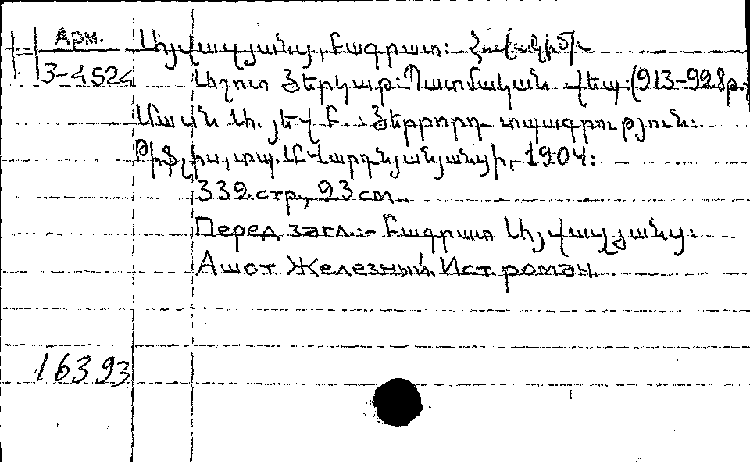 Арм.
3-4524
Այվազյանց, Բագրատ։
Աշոտ Յերկաթ։ Պատմական վեպ։ (913-928թ.)
Մասն Ա. յեվ Բ. Յերրորդ տպագրություն։
Թիֆլիս, տպ. Մ. Վարդանյանցի, 1904։
339 стр., 23 cm.
Перед загл.:- Բագրատ Այվազյանց։
Ашот Железный. Ист. роман.
16393